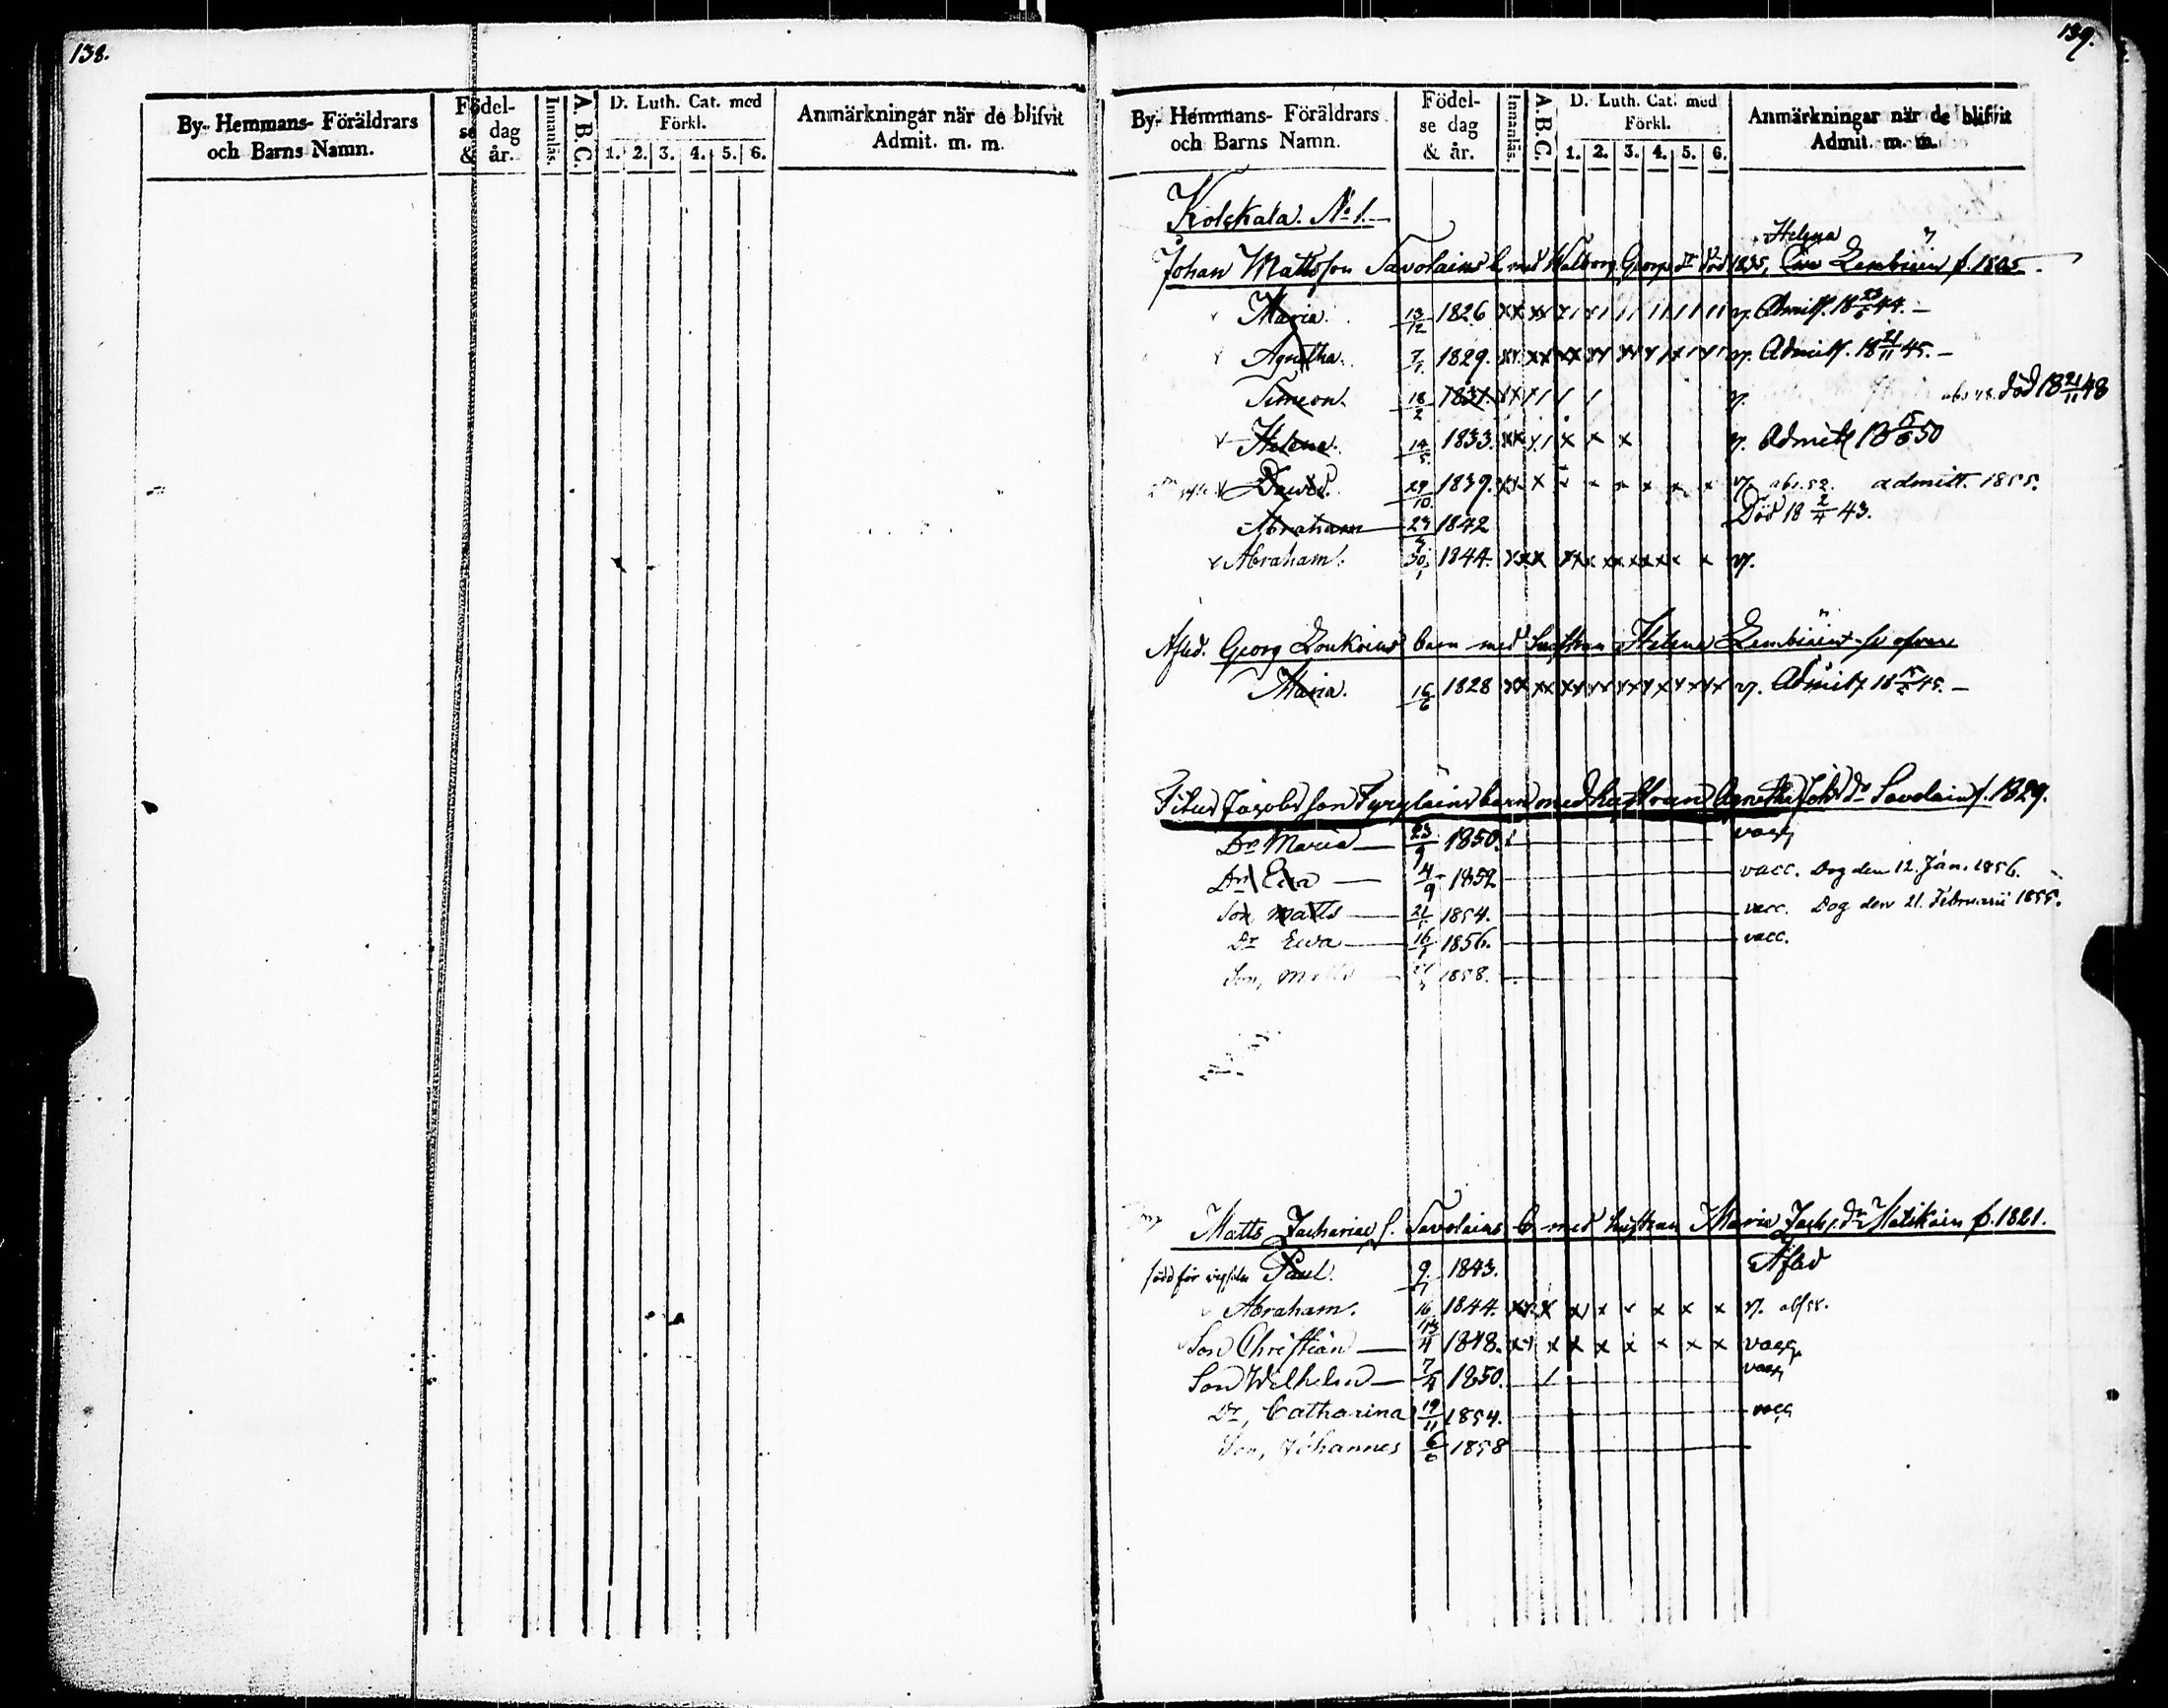 138.
By- Hemmans- Föräldrars och Barns Namn.
Födel- se dag & år.
Innanläs.
A. B. C.
D. Luth. Cat. med Förkl.
1. 2. 3. 4. 5. 6.
Anmärkningar när de blifvit Admit. m. m.
139.
By- Hemmans- Föräldrars och Barns Namn.
Födel- se dag & år.
Innanläs.
A. B. C.
D. Luth. Cat. med Förkl.
1. 2. 3. 4. 5. 6.
Anmärkningar när de blifvit Admit. m. m.
Kolskala. No 1.
Helena
Johan Mattsson Savolains b. med Walborg Georgs dr död 1835, Lembiäin f. 1805.
Maria. 13/12 1826 v. Admitt. 18 44.
Agnetha. 1829. v. Admitt. 18 21/11 45.
Simeon. 18/2 1831. v. död 18 21/11 48
Helena. 14/5 1833. v. Admitt 18 50
David. 29/10 1839. v. abs. 52. admitt. 1855.
Abraham 23 1842 Död 18 2/4 43.
Abraham. 30/1 1844. v.
Afled. Georg Loukains barn med hustrun Helena Lembiäin se ofvan
Maria. 16/6 1828 v. Admitt 18 45.
Titus Jacobsson Tyryläins barn med hustrun Agnetha Johs dr Savolain f. 1829.
Dr Maria 23/9 1850. vacc
Dr Eva 4/9 1852 vacc. Dog den 12. Jan. 1856.
Son Matts 21 1854. vacc. Dog den 21. Februarii 1855.
Dr Ewa 16 1856. vacc.
Son, Matts 1858.
Matts Zacharias s. Savolains b. med hustrun Maria Zachs. dr Matikain f. 1821.
född för vigseln Paul. 9 1843. Afled
Abraham. 16 1844. v.
Son Christian 13/4 1848. vacc
Son Wilhelm 7/4 1850. vacc
Dr, Catharina 19/11 1854. vacc
Son, Johannes 6/6 1858